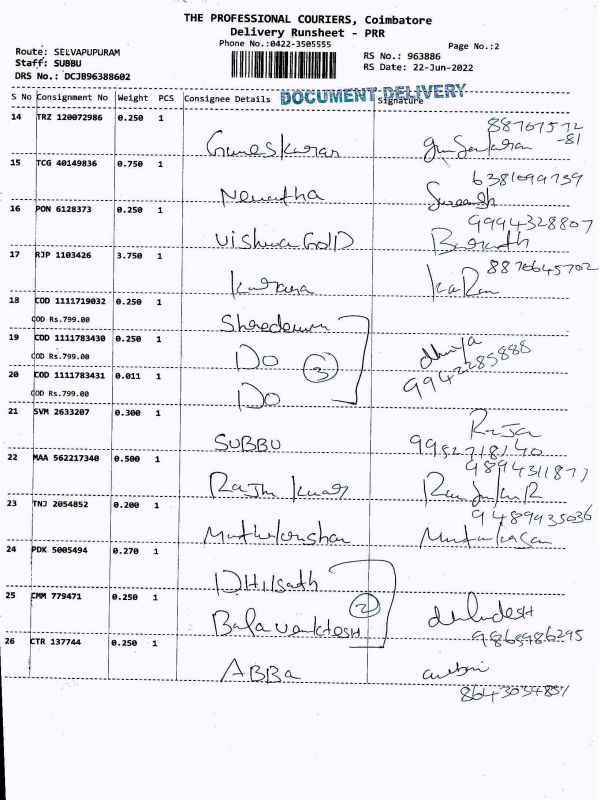 THE PROFESSIONAL COURIERS, Coimbatore
Delivery Runsheet - PRR
Phone No.:0422-3505555
Page No.:2
Route: SELVAPUPURAM
Staff: SUBBU
DRS No.: DCJB96388602
RS No.: 963886
RS Date: 22-Jun-2022
S No Consignment No Weight PCS Consignee Details DOCUMENT DELIVERY Signature
14 TRZ 120072986 0.250 1
-81
15 TCG 40149836 0.750 1
16 PON 6128373 0.250 1
9994328807
Vishwa GolD
17 RJP 1103426 3.750 1
8870645702
18 COD 1111719032 0.250 1
COD Rs.799.00
19 COD 1111783430 0.250 1
COD Rs.799.00
Do 3
20 COD 1111783431 0.011 1
9942285888
COD Rs.799.00
Do
21 SVM 2633207 0.300 1
Raja
SUBBU 9952718140
22 MAA 562217340 0.500 1
9894311877
23 TNJ 2054852 0.200 1
9489935036
24 PDK 5005494 0.270 1
DHilsath
25 CMM 779471 0.250 1
2
9869986295
26 CTR 137744 0.250 1
ABBa